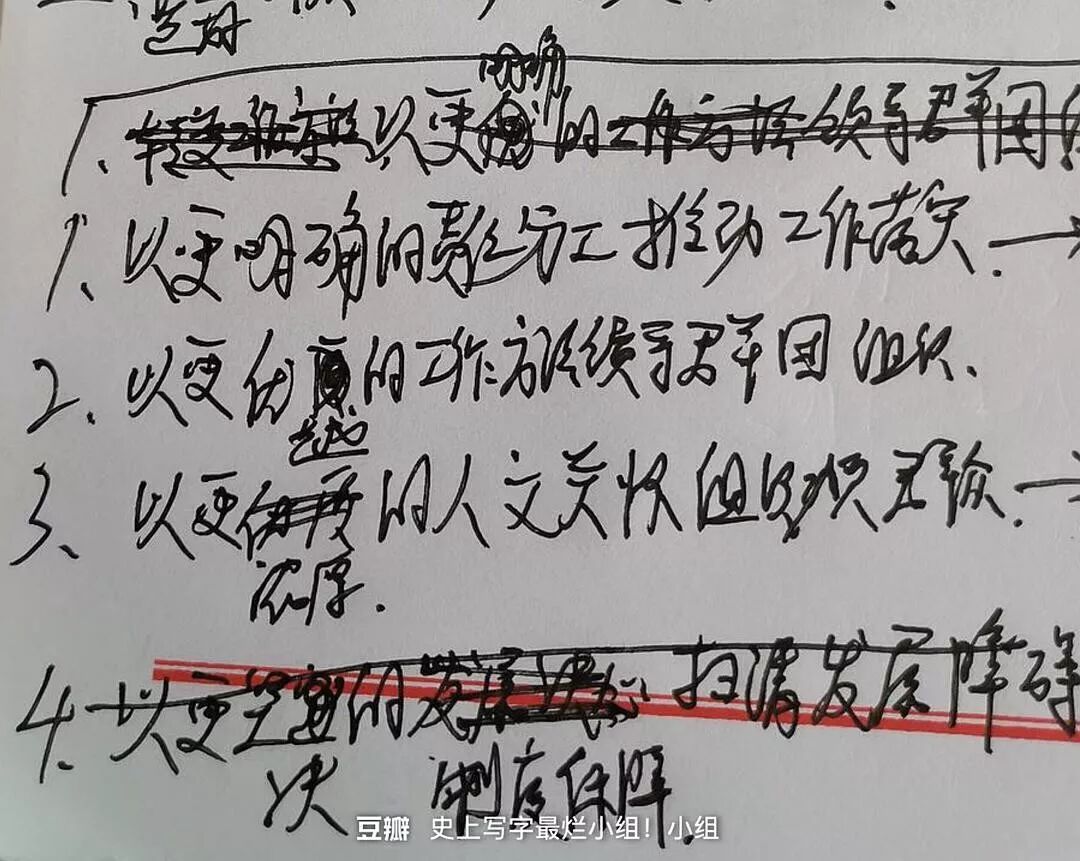 造成
明确
1、以更的工作方法领导群团
1、以更明确的责任分工推动工作落实.
2、以更优越的工作方法领导群团组织.
3、以更的人文关怀组织
浓厚.
4、以更坚的扫清发展障碍
决 制度保障.
豆瓣 史上写字最烂小组！小组